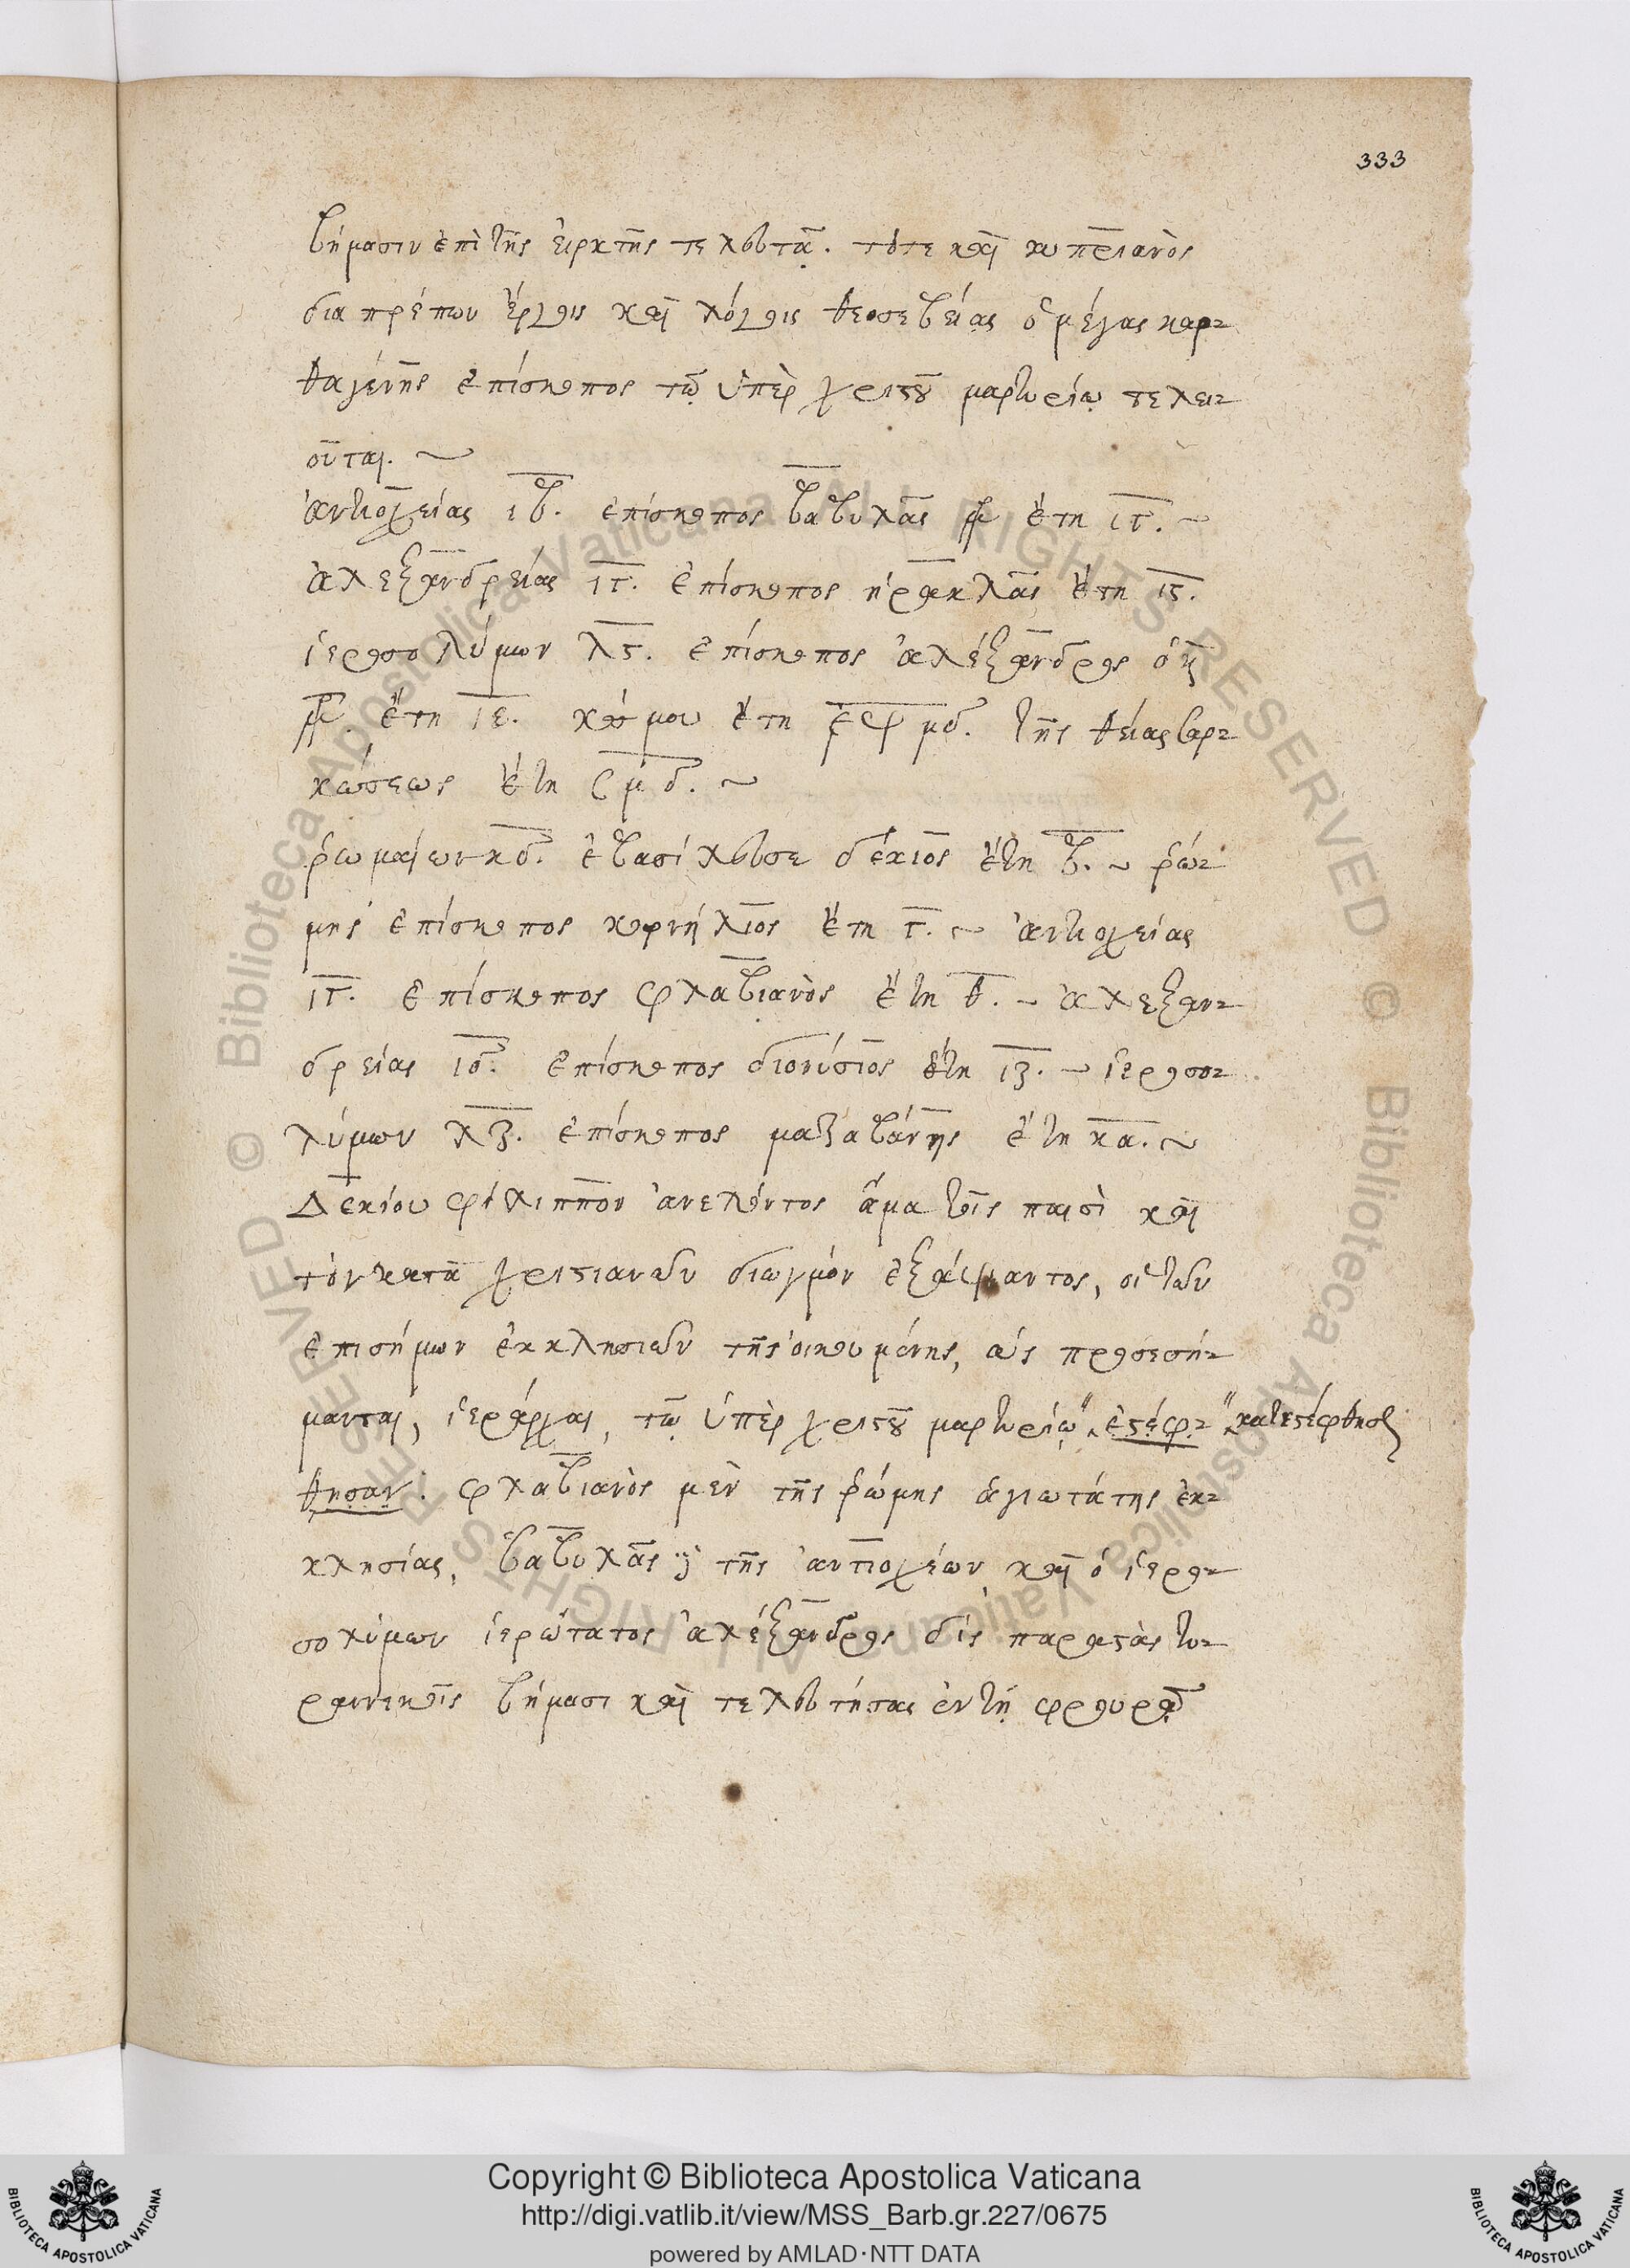 333
βήμασιν ἐπὶ τῆς εἱρκτῆς τελευτᾷ. τότε καὶ κυπριανὸς
διαπρέπων ἔργοις καὶ λόγοις θεοσεβείας ὁ μέγας καρ-
θαγένης ἐπίσκοπος τῷ ὑπὲρ χριστοῦ μαρτυρίῳ τελει-
οῦται. ~
ἀντιοχείας ιβ. ἐπίσκοπος βαβυλᾶς ἔτη ιγ. ~
ἀλεξανδρείας ιγ. ἐπίσκοπος ἡρακλᾶς ἔτη ις.
ἱεροσολύμων λς. ἐπίσκοπος ἀλέξανδρος ὁ κ
ἔτη ιε. κόσμου ἔτη ͵εψμδ. τῆς θείας σαρ-
κώσεως ἔτη σμδ. ~
ῥωμαίων κδ. ἐβασίλευσε δέκιος ἔτη β. ~ ῥώ-
μης ἐπίσκοπος κορνήλιος ἔτη γ. ~ ἀντιοχείας
ιγ. ἐπίσκοπος φλαβιανὸς ἔτη θ. ~ ἀλεξαν-
δρείας ιδ. ἐπίσκοπος διονύσιος ἔτη ιζ. ~ ἱεροσο-
λύμων λζ. ἐπίσκοπος μαζαβάνης ἔτη κα. ~
Δεκίου φίλιππον ἀνελόντος ἅμα τοῖς παισὶ καὶ
τὸν κατὰ χριστιανῶν διωγμὸν ἐξάψαντος, οἱ τῶν
ἐπισήμων ἐκκλησιῶν τῆς οἰκουμένης, ὡς προσεσή-
μανται, ἱεράρχαι, τῷ ὑπὲρ χριστοῦ μαρτυρίῳ ἐστέφ- κατεστέφθησαν
θησαν. φλαβιανὸς μὲν τῆς ῥώμης ἁγιωτάτης ἐκ-
κλησίας, βαβυλᾶς τῆς ἀντιοχέων καὶ ὁ ἱερο-
σολύμων ἱερώτατος ἀλέξανδρος δὶς παραστὰς τυ-
ραννικοῖς βήμασι καὶ τελευτήσας ἐν τῇ φρουρᾷ
Copyright © Biblioteca Apostolica Vaticana
http://digi.vatlib.it/view/MSS_Barb.gr.227/0675
powered by AMLAD·NTT DATA
BIBLIOTECA APOSTOLICA VATICANA
BIBLIOTECA APOSTOLICA VATICANA
© Biblioteca Apostolica Vaticana ALL RIGHTS RESERVED © Biblioteca Apostolica Vaticana ALL RIGHTS RESERVED